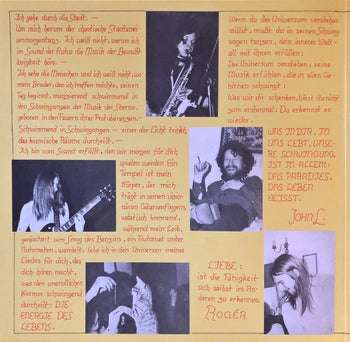 Ich gehe durch die Stadt. –
Um mich herum der chaotische Streaten-
senmorgentanz. Ich weiß nicht, warum ich
im Sound der Autos die Musik der Bewußt-
losigkeit höre. –
Ich sehe die Menschen und ich weiß nicht, wo
mein Bruder, den ich treffen möchte, seinen
Tag beginnt, musizierend schwimmend in
den Schwingungen der Musik der Sterne,
geboren in den Feuern ihrer Protuberanzen.
Schwimmend in Schwingungen – einer der Licht trinkt,
das kosmische Räume durcheilt. –
Ich bin vom Sound erfüllt, den wir morgen für dich
spielen werden. Ein
Tempel ist mein
Körper, der mich
trägt in seinen visio-
nären Gitarrenfingern,
ekstatisch brennend,
während mein Leib,
geräuchert vom Smog des Benzins, ein Automat unter
Automaten, wandelt, lebe ich in den Universum meines
Liedes für dich, das
dich hören macht,
was den unendlichen
Kosmos schwingend
durcheilt: DIE
ENERGIE DES
LEBENS.
Wenn du das Universum verstehen
willst, mußt du in seinen Schwin-
gungen tanzen, dein inneres Welt-
all mit ihnen erfüllen:
Das Universum verstehen: seine
Musik erfühlen, die in allen Ge-
hirnen schwingt:
Was wir dir schenken, hörst du nicht
zum erstenmal: Du erkennst es
wieder:
WAS IN DIR, IN
UNS LEBT, UNSE-
RE SCHWINGUNG,
IST IN ALLEM:
DAS PARADIES,
DAS LEBEN
HEISST.
JOHN L.
LIEBE:
ist die Fähigkeit
sich selbst im An-
deren zu erkennen.
ROGER